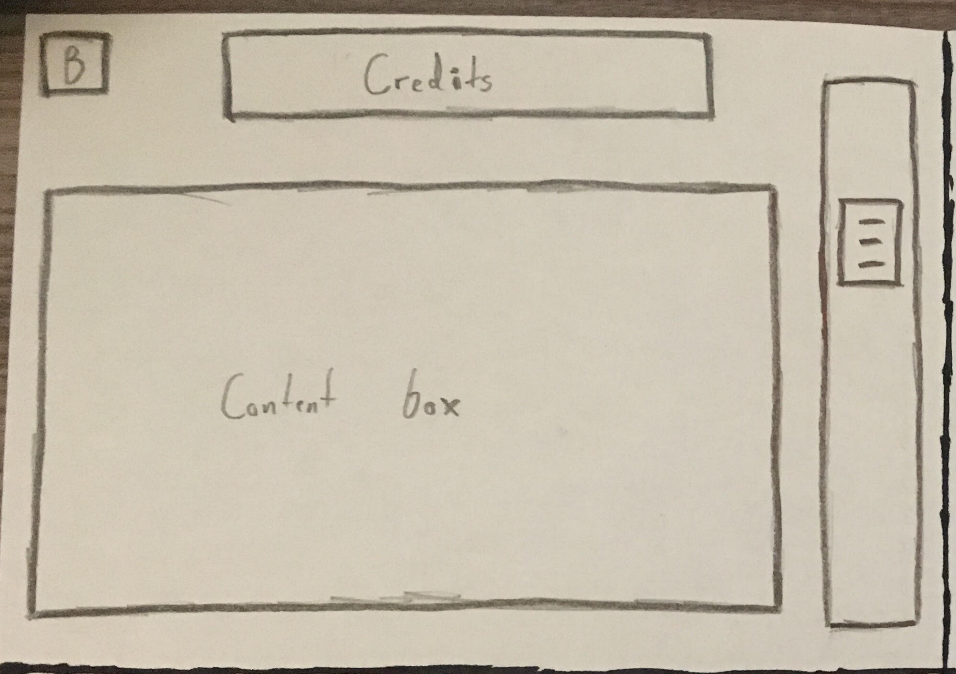 B
Credits
Content box